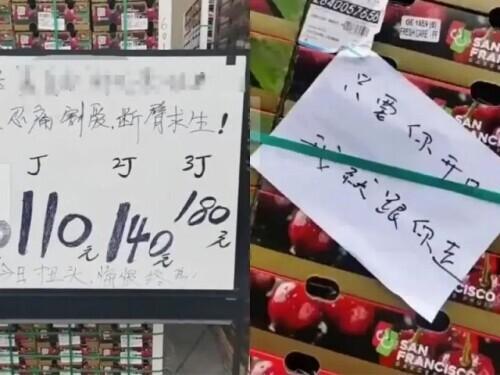 忍痛割爱,断臂求生!
J 2J 3J
110元 140元 180元
今日扭头,悔恨终
2640057656
FRESH CARE - FF
只要你开口
我就跟你走
SAN FRANCISCO
SAN
FRANCISCO